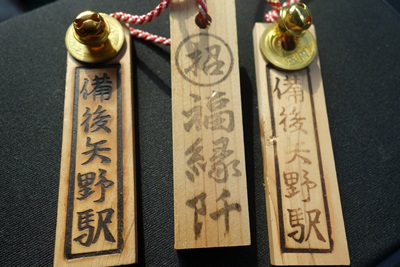 備後矢野駅
招
福縁阡
備後矢野駅